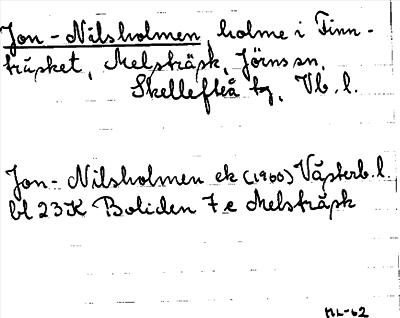 Jon-Nilsholmen, holme i Finn-
träsket, Melsträsk, Jörns sn,
Skellefteå tg, Vb. l.
Jon-Nilsholmen ek (1960) Västerb. l.
bl 23K Boliden 7e Melsträsk
ML-62